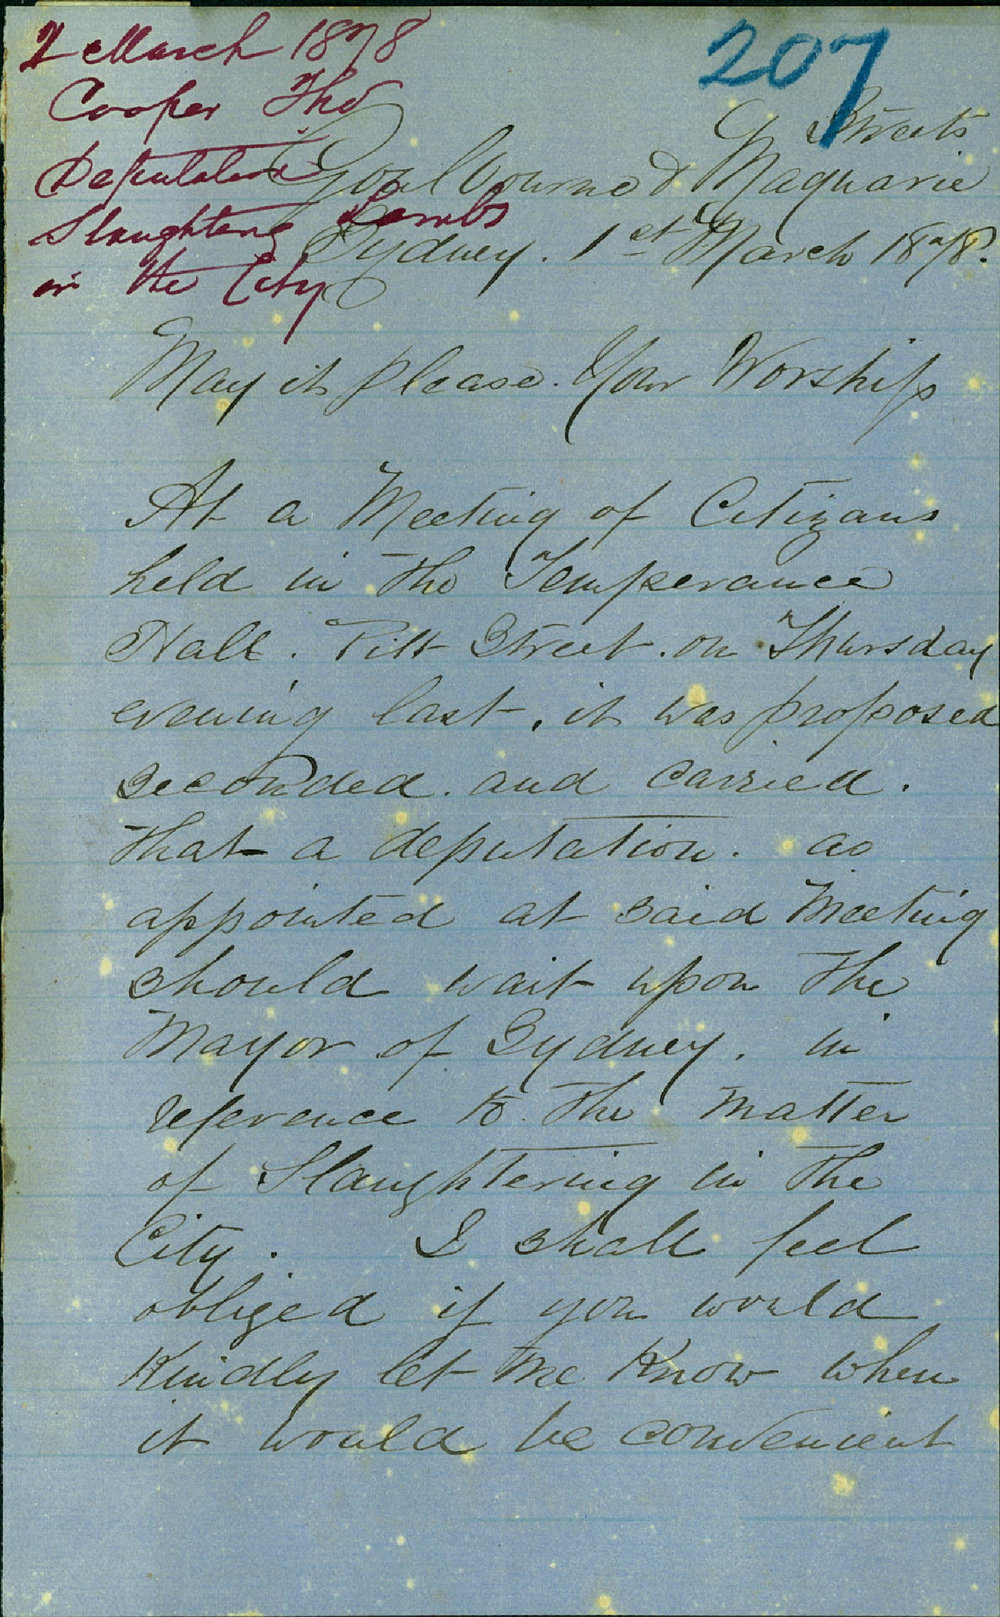 2 March 1878
Cooper Thos
Deputation
Slaughtering Lambs
in the City
207
Streets
Goulbourne & Maquarie
Sydney. 1st March 1878.
May it please. Your Worship
At a Meeting of Citizans
held in the Temperance
Hall. Pitt Street. on Thursday
evening last, it was proposed
seconded. and carried.
that a deputation. as
appointed at said Meeting
should wait upon the
Mayor of Sydney. in
reference to the matter
of Slaughtering in the
City. I shall feel
obliged if you would
Kindly let me Know when
it would be convenient